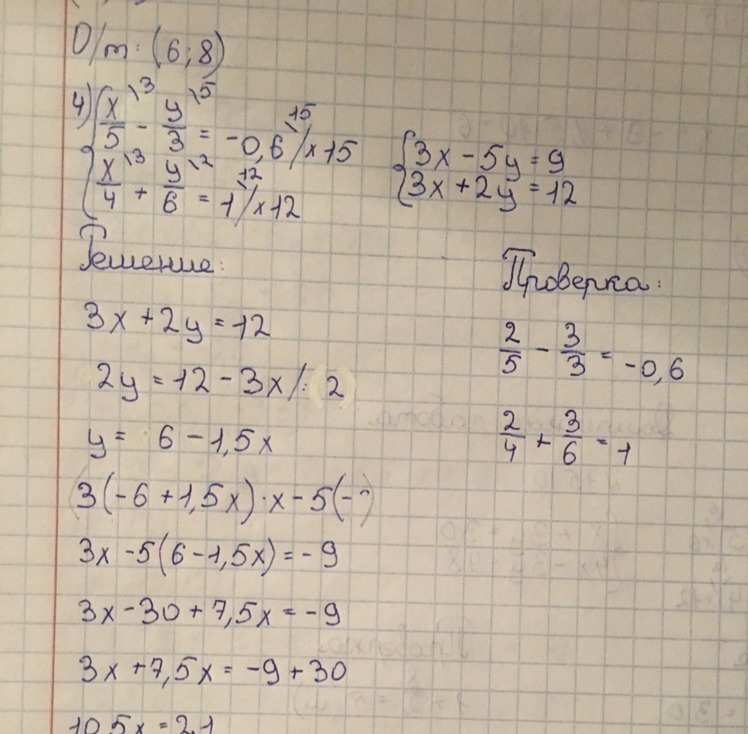 О/т: (6;8)
4) { x/5 \3 - y/3 \5 = -0,6 \15 /×15
{ x/4 \3 + y/6 \2 = 1 \12 /×12
{ 3x - 5y = 9
{ 3x + 2y = 12
Решение:
3x + 2y = 12
2y = 12 - 3x /: (2)
y = 6 - 1,5x
(3(-6 + 1,5x) · x - 5(-
3x - 5(6 - 1,5x) = -9
3x - 30 + 7,5x = -9
3x + 7,5x = -9 + 30
10,5x = 21
Проверка:
2/5 - 3/3 = -0,6
2/4 + 3/6 = 1